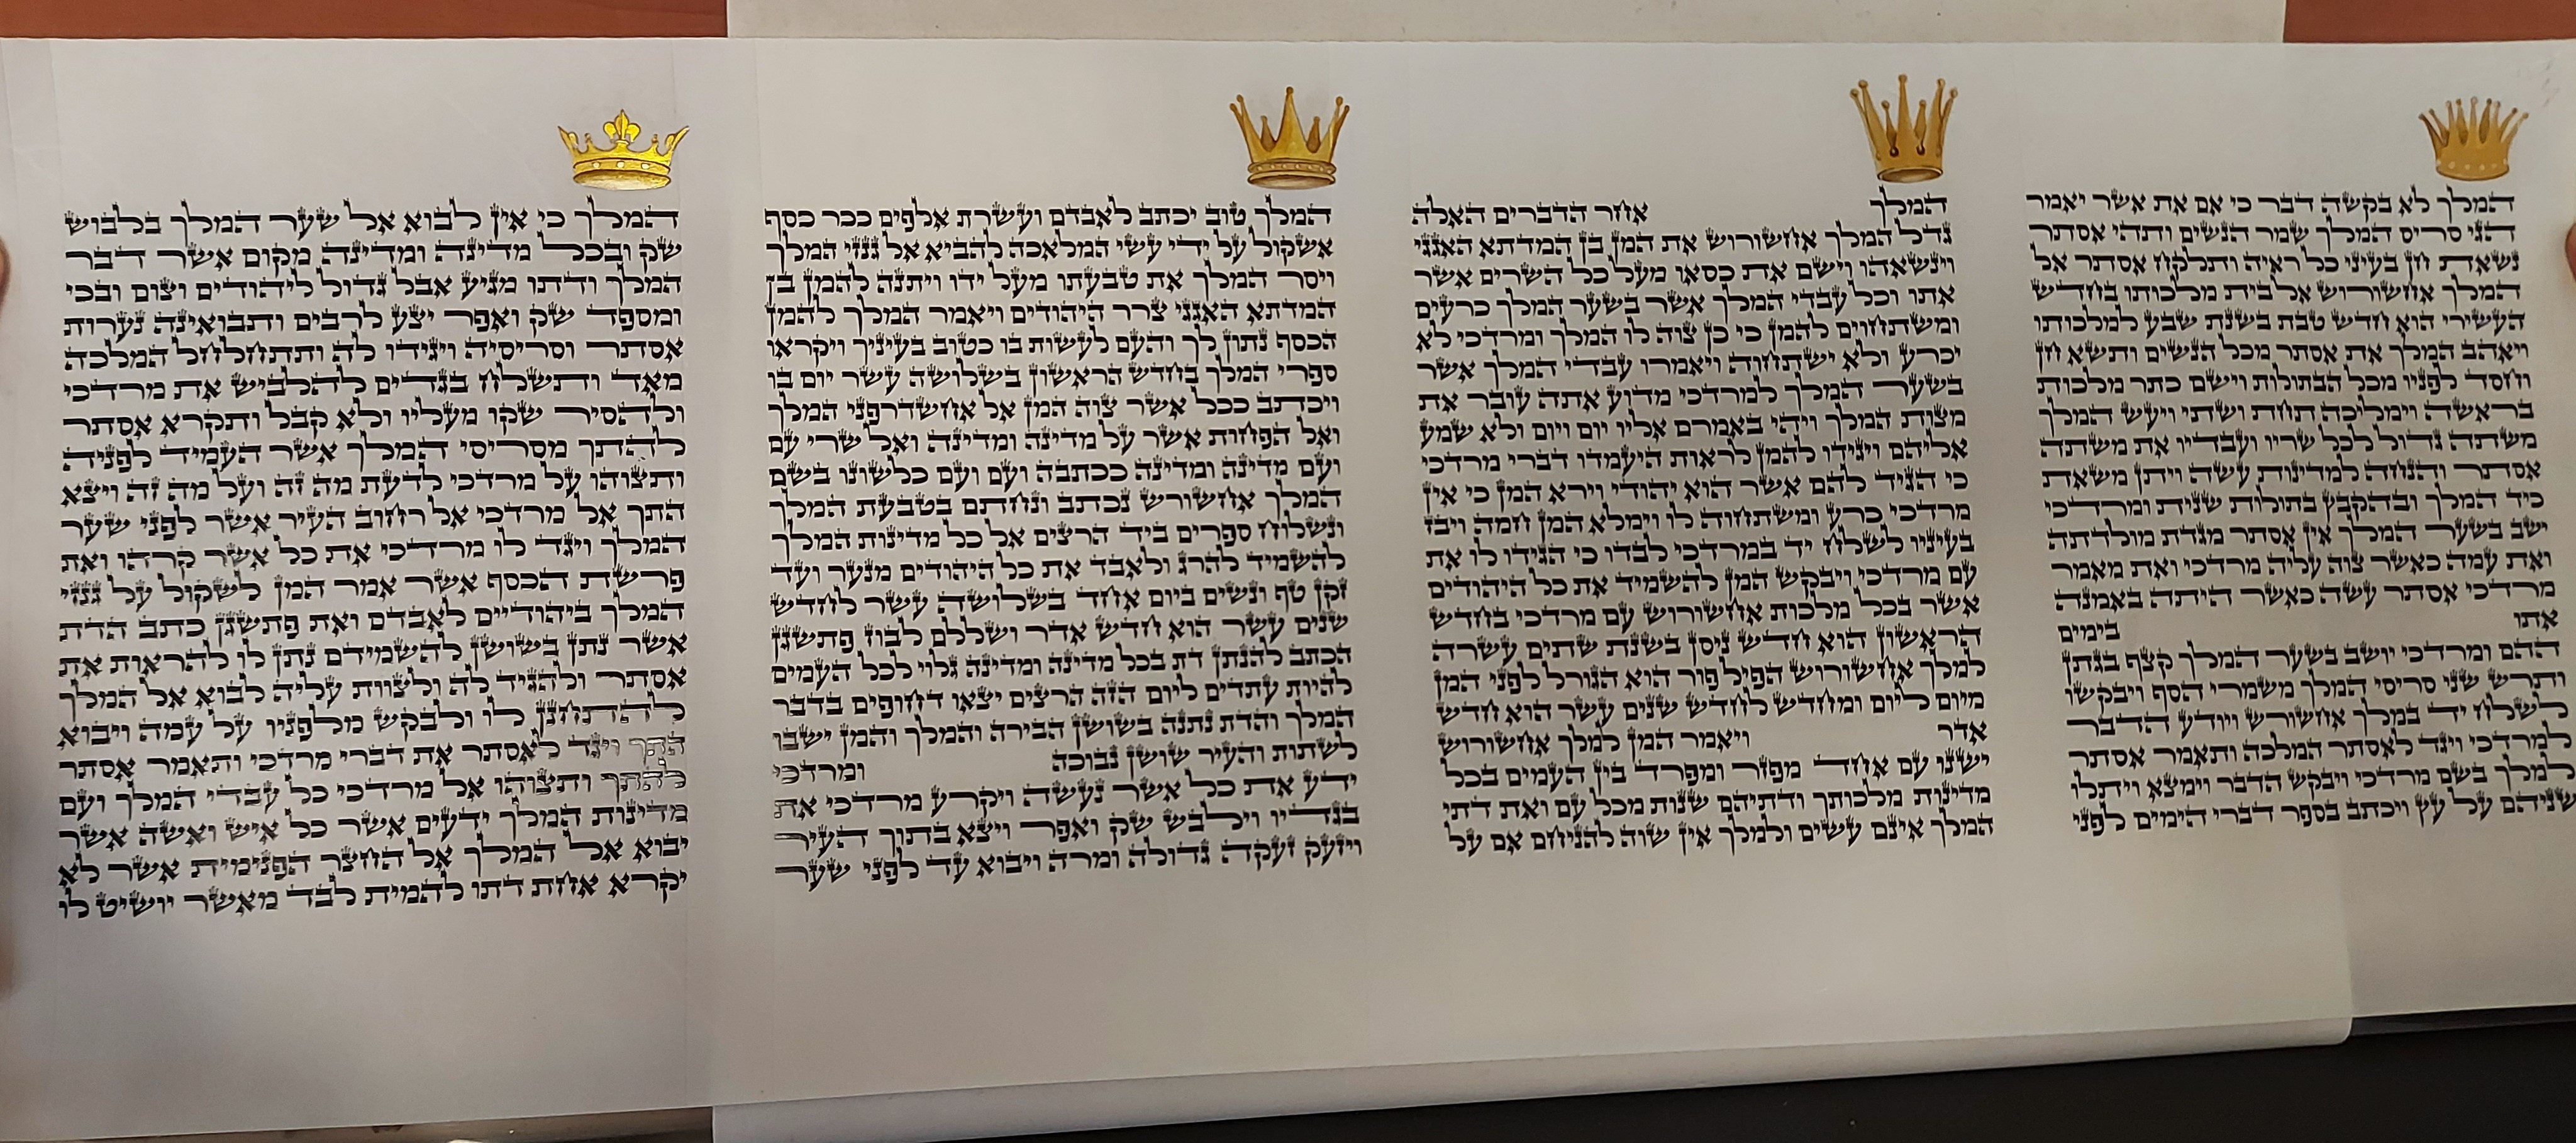 המלך לא בקשה דבר כי אם את אשר יאמר
הגי סריס המלך שמר הנשים ותהי אסתר
נשאת חן בעיני כל ראיה ותלקח אסתר אל
המלך אחשורוש אל בית מלכותו בחדש
העשירי הוא חדש טבת בשנת שבע למלכותו
ויאהב המלך את אסתר מכל הנשים ותשא חן
וחסד לפניו מכל הבתולות וישם כתר מלכות
בראשה וימליכה תחת ושתי ויעש המלך
משתה גדול לכל שריו ועבדיו את משתה
אסתר והנחה למדינות עשה ויתן משאת
כיד המלך ובהקבץ בתולות שנית ומרדכי
ישב בשער המלך אין אסתר מגדת מולדתה
ואת עמה כאשר צוה עליה מרדכי ואת מאמר
מרדכי אסתר עשה כאשר היתה באמנה
אתו בימים
ההם ומרדכי יושב בשער המלך קצף בגתן
ותרש שני סריסי המלך משמרי הסף ויבקשו
לשלח יד במלך אחשורוש ויודע הדבר
למרדכי ויגד לאסתר המלכה ותאמר אסתר
למלך בשם מרדכי ויבקש הדבר וימצא ויתלו
שניהם על עץ ויכתב בספר דברי הימים לפני
המלך אחר הדברים האלה
גדל המלך אחשורוש את המן בן המדתא האגגי
וינשאהו וישם את כסאו מעל כל השרים אשר
אתו וכל עבדי המלך אשר בשער המלך כרעים
ומשתחוים להמן כי כן צוה לו המלך ומרדכי לא
יכרע ולא ישתחוה ויאמרו עבדי המלך אשר
בשער המלך למרדכי מדוע אתה עובר את
מצות המלך ויהי באמרם אליו יום ויום ולא שמע
אליהם ויגידו להמן לראות היעמדו דברי מרדכי
כי הגיד להם אשר הוא יהודי וירא המן כי אין
מרדכי כרע ומשתחוה לו וימלא המן חמה ויבז
בעיניו לשלח יד במרדכי לבדו כי הגידו לו את
עם מרדכי ויבקש המן להשמיד את כל היהודים
אשר בכל מלכות אחשורוש עם מרדכי בחדש
הראשון הוא חדש ניסן בשנת שתים עשרה
למלך אחשורוש הפיל פור הוא הגורל לפני המן
מיום ליום ומחדש לחדש שנים עשר הוא חדש
אדר ויאמר המן למלך אחשורוש
ישנו עם אחד מפזר ומפרד בין העמים בכל
מדינות מלכותך ודתיהם שנות מכל עם ואת דתי
המלך אינם עשים ולמלך אין שוה להניחם אם על
המלך טוב יכתב לאבדם ועשרת אלפים ככר כסף
אשקול על ידי עשי המלאכה להביא אל גנזי המלך
ויסר המלך את טבעתו מעל ידו ויתנה להמן בן
המדתא האגגי צרר היהודים ויאמר המלך להמן
הכסף נתון לך והעם לעשות בו כטוב בעיניך ויקראו
ספרי המלך בחדש הראשון בשלושה עשר יום בו
ויכתב ככל אשר צוה המן אל אחשדרפני המלך
ואל הפחות אשר על מדינה ומדינה ואל שרי עם
ועם מדינה ומדינה ככתבה ועם ועם כלשונו בשם
המלך אחשורש נכתב ונחתם בטבעת המלך
ונשלוח ספרים ביד הרצים אל כל מדינות המלך
להשמיד להרג ולאבד את כל היהודים מנער ועד
זקן טף ונשים ביום אחד בשלושה עשר לחדש
שנים עשר הוא חדש אדר ושללם לבוז פתשגן
הכתב להנתן דת בכל מדינה ומדינה גלוי לכל העמים
להיות עתדים ליום הזה הרצים יצאו דחופים בדבר
המלך והדת נתנה בשושן הבירה והמלך והמן ישבו
לשתות והעיר שושן נבוכה ומרדכי
ידע את כל אשר נעשה ויקרע מרדכי את
בגדיו וילבש שק ואפר ויצא בתוך העיר
ויזעק זעקה גדולה ומרה ויבוא עד לפני שער
המלך כי אין לבוא אל שער המלך בלבוש
שק ובכל מדינה ומדינה מקום אשר דבר
המלך ודתו מגיע אבל גדול ליהודים וצום ובכי
ומספד שק ואפר יצע לרבים ותבואינה נערות
אסתר וסריסיה ויגידו לה ותתחלחל המלכה
מאד ותשלח בגדים להלביש את מרדכי
ולהסיר שקו מעליו ולא קבל ותקרא אסתר
להתך מסריסי המלך אשר העמיד לפניה
ותצוהו על מרדכי לדעת מה זה ועל מה זה ויצא
התך אל מרדכי אל רחוב העיר אשר לפני שער
המלך ויגד לו מרדכי את כל אשר קרהו ואת
פרשת הכסף אשר אמר המן לשקול על גנזי
המלך ביהודיים לאבדם ואת פתשגן כתב הדת
אשר נתן בשושן להשמידם נתן לו להראות את
אסתר ולהגיד לה ולצוות עליה לבוא אל המלך
להתחנן לו ולבקש מלפניו על עמה ויבוא
התך ויגד לאסתר את דברי מרדכי ותאמר אסתר
להתך ותצוהו אל מרדכי כל עבדי המלך ועם
מדינות המלך ידעים אשר כל איש ואשה אשר
יבוא אל המלך אל החצר הפנימית אשר לא
יקרא אחת דתו להמית לבד מאשר יושיט לו